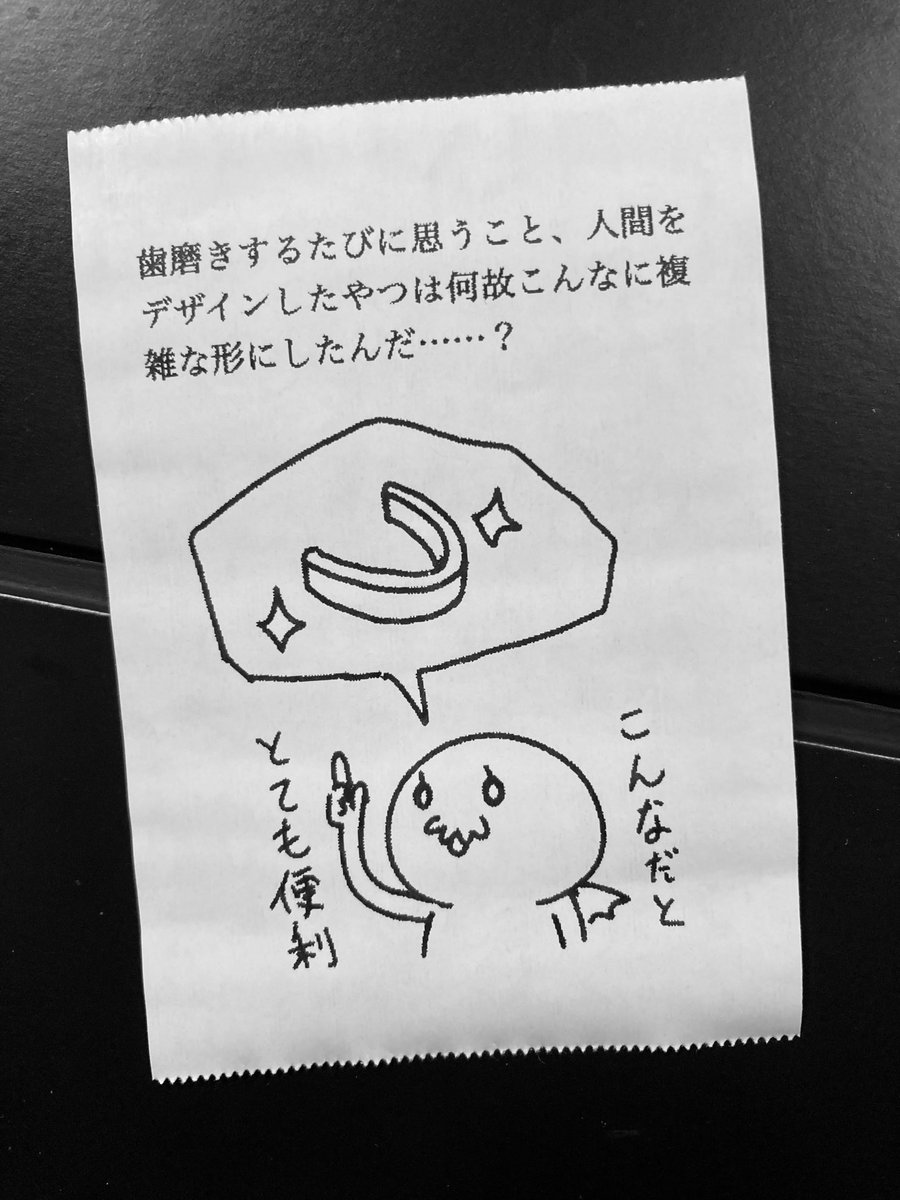 歯磨きするたびに思うこと、人間を
デザインしたやつは何故こんなに複
雑な形にしたんだ……？
こんなだと
とても便利